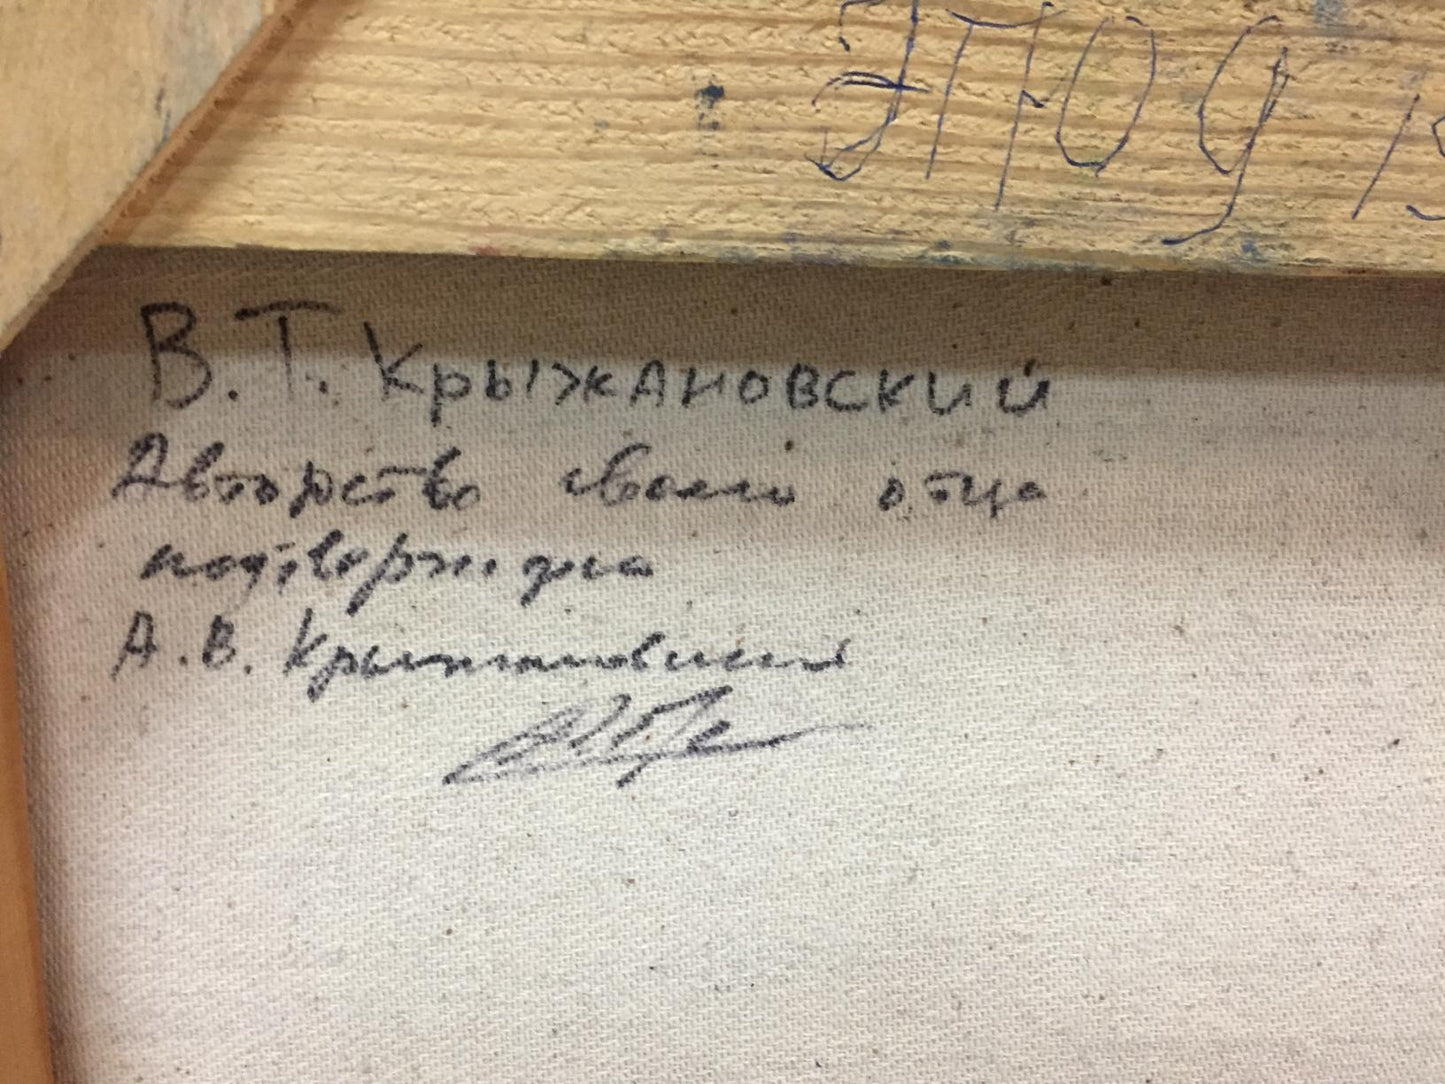 Этюд 19
В. Т. Крыжановский
Авторство своего отца
подтверждаю
А. В. Крыжановский